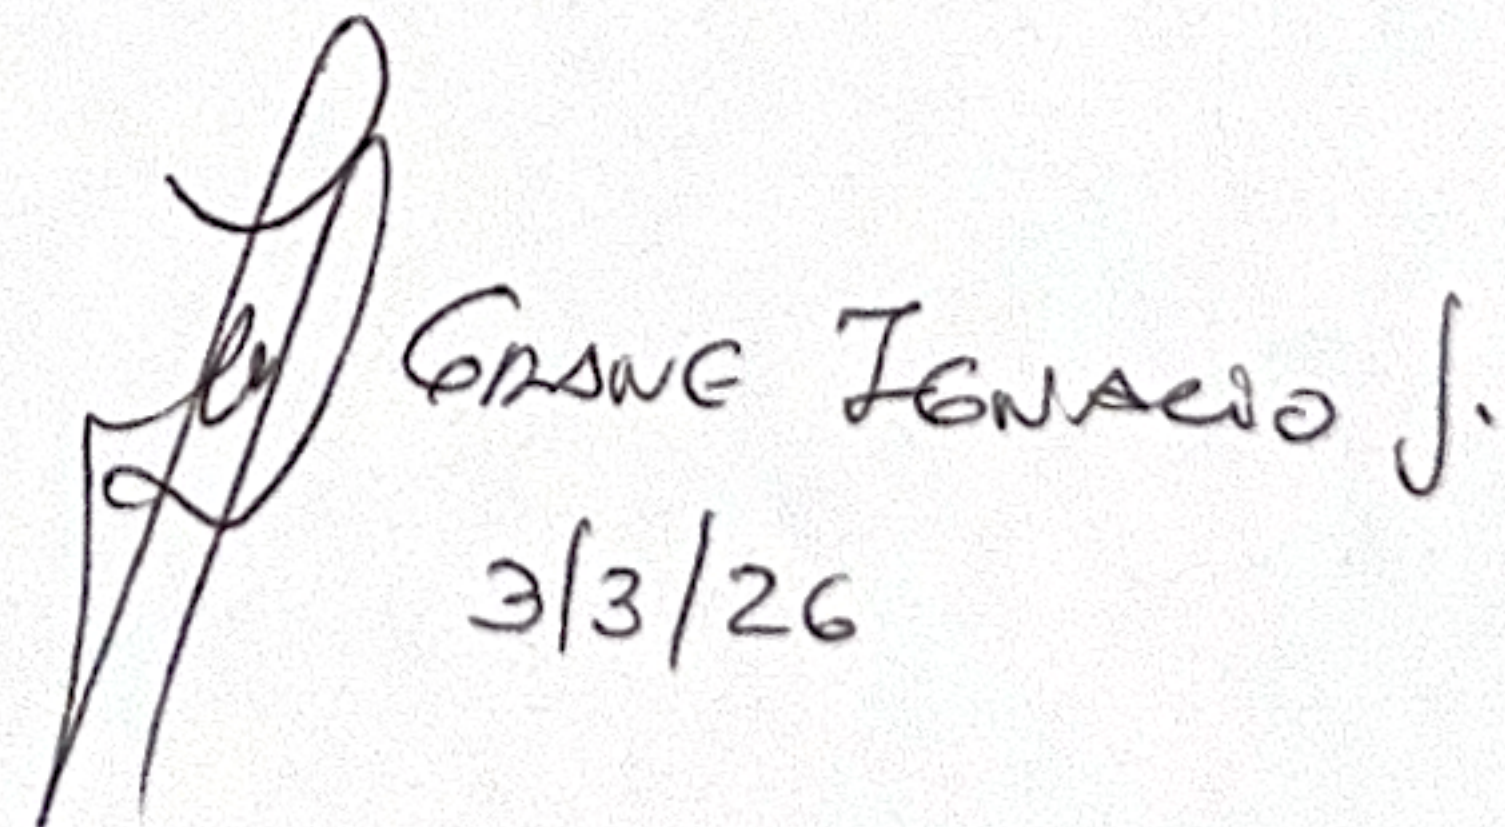 GRANE IGNACIO J.
3/3/26